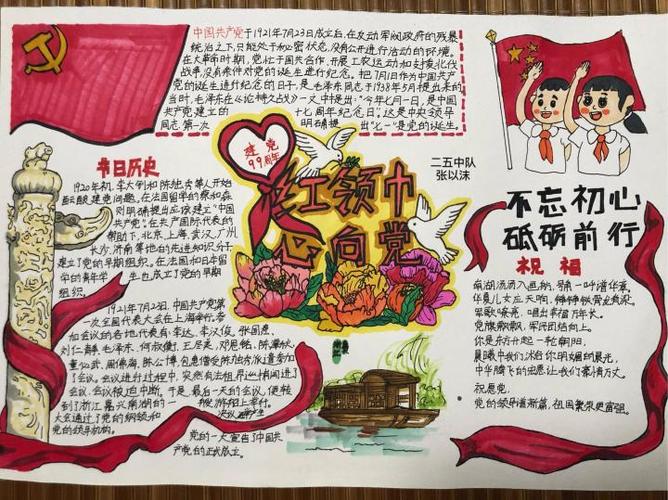 中国共产党于1921年7月23日成立后,在反动军阀政府的残暴
统治之下,只能处于秘密状态,没有公开进行活动的环境。
在大革命时期,党忙于国共合作、开展工农运动和支援北伐
战争,没有条件对党的诞生进行纪念。把7月1日作为中国共产
党的诞生进行纪念的日子,是毛泽东同志于1938年5月提出来的
当时,毛泽东在《论持久战》一文中提出:“今年七月一日,是中国
共产党建立的 十七周年纪念日”,这是中央领导
同志第一次 明确提出“七一”是党的诞生。
建党
99周年
红领巾
心向党
二五中队
张以沫
节日历史
1920年初,李大钊和陈独秀等人开始
酝酿建党问题。在法国留学的蔡和森
则明确提出应该建立“中国
共产党”。在共产国际代表的
帮助下,北京、上海、武汉、广州
长沙、济南等地的先进知识分子
建立了党的早期组织。在法国和日本留
学的青年学 生也成立了党的早期
组织。
1921年7月23日,中国共产党第
一次全国代表大会在上海举行。参
加会议的各地代表有:李达、李汉俊、张国焘、
刘仁静、毛泽东、何叔衡、王尽美、邓恩铭、陈潭秋、
董必武、周佛海、陈公博,包惠僧受陈独秀派遣参加
了会议。会议进行过程中,突然有法租界巡捕闯进了
会议,会议被迫中断。于是,最后一天的会议,便转
到了浙江嘉兴南湖的一 游船上举行。
大会通过了党的纲领和 决议
党的领导机构。
党的一大宣告了中国共
产党的正式成立。
不忘初心
砥砺前行
祝福
南湖荡荡入画舫,
华夏儿女立天响,铮铮铁骨
军歌嘹亮,唱出幸福万年长。
党旗飘飘,军民团结向上。
你是东方升起一轮朝阳,
晨曦中我们沐浴你明媚的晨光,
中华腾飞的思愿让我们豪情万丈。
祝愿党
党的领导谱新篇,祖国繁荣更富强。